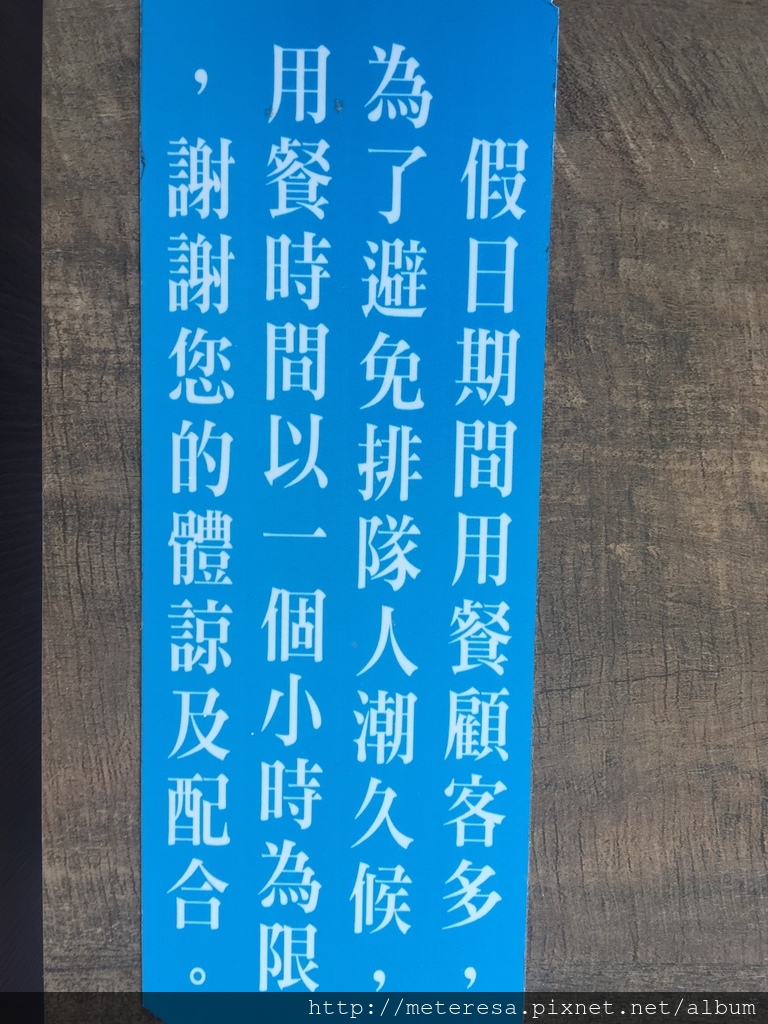 假日期間用餐顧客多，
為了避免排隊人潮久候，
用餐時間以一個小時為限
，謝謝您的體諒及配合。
http://meteresa.pixnet.net/album